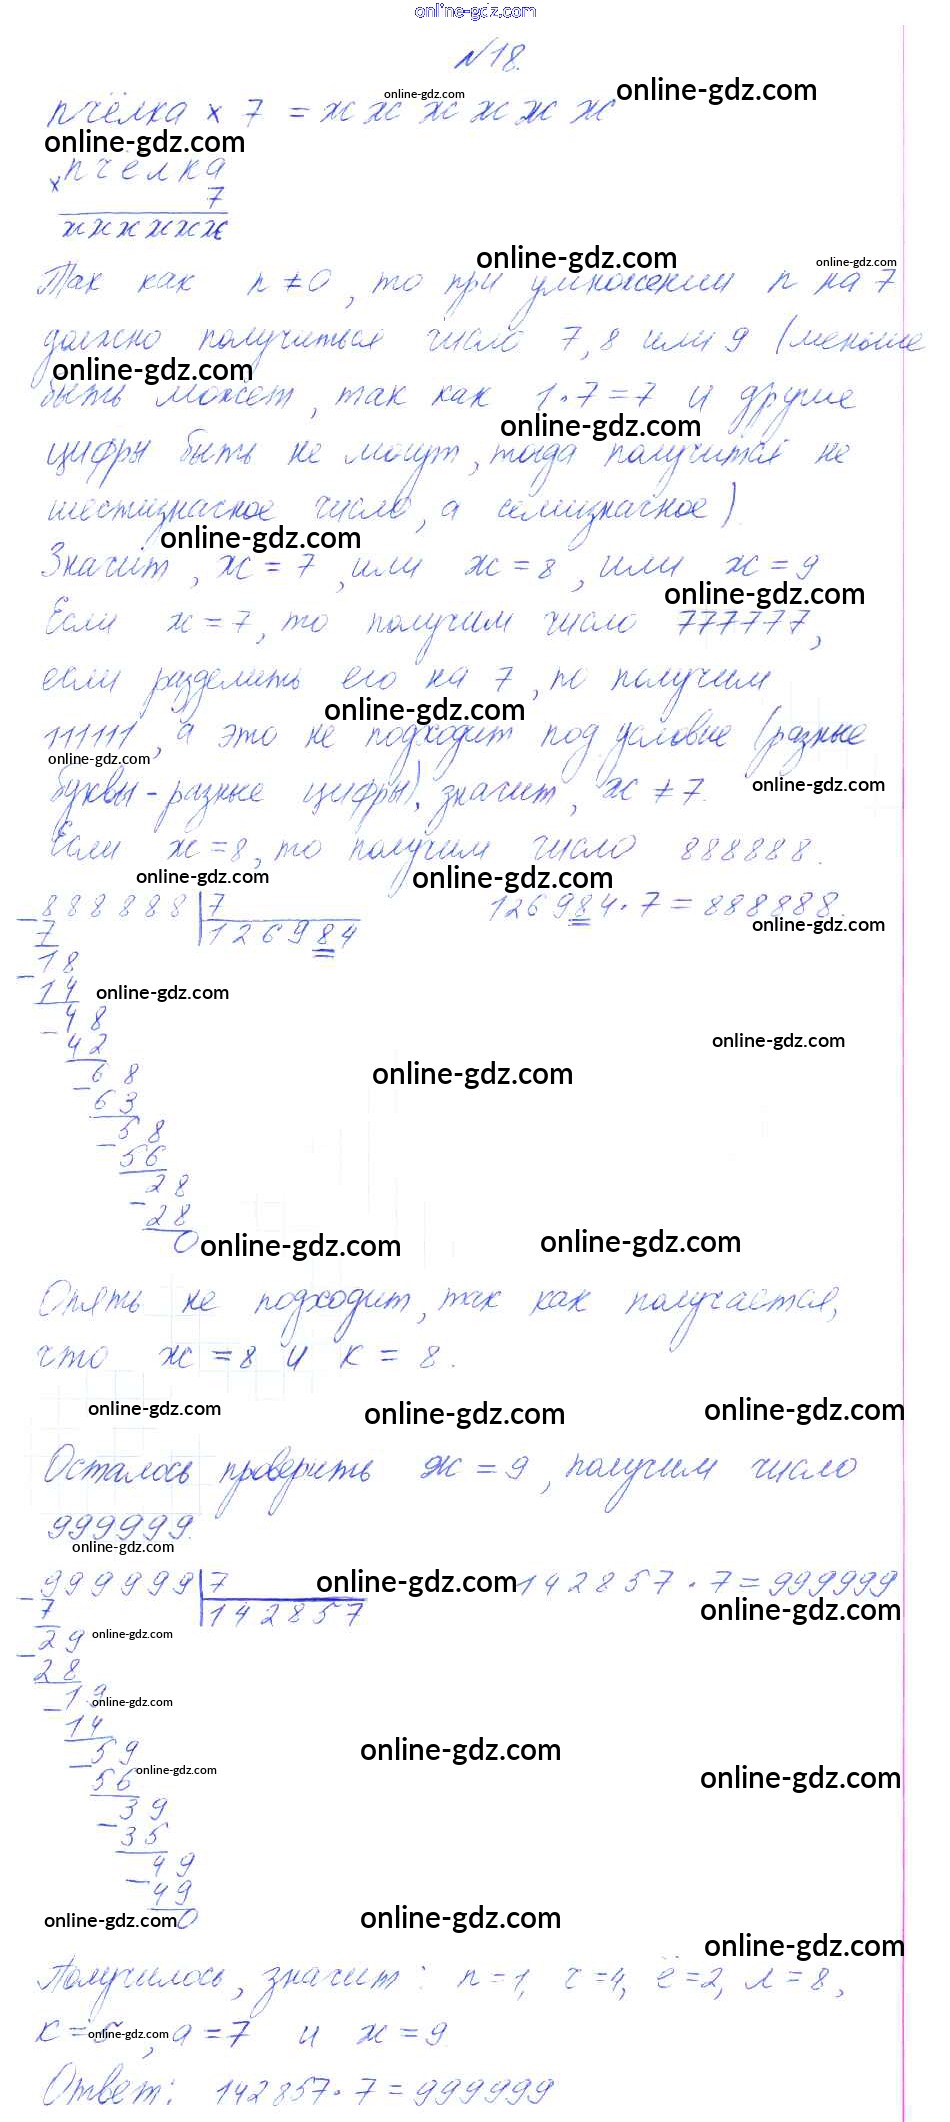 online-gdz.com
№18.
пчёлка × 7 = ж ж ж ж ж ж
online-gdz.com
online-gdz.com
online-gdz.com
× пчёлка
7
жжжжжж
online-gdz.com
online-gdz.com
Так как п ≠ 0, то при умножении п на 7
должно получиться число 7, 8 или 9 (меньше
online-gdz.com
быть может, так как 1·7=7 и другие
online-gdz.com
цифры быть не могут, тогда получится не
шестизначное число, а семизначное)
online-gdz.com
Значит, ж = 7, или ж = 8, или ж = 9
online-gdz.com
Если ж = 7, то получим число 777777,
если разделить его на 7, то получим
online-gdz.com
111111, а это не подходит под условие (разные
online-gdz.com
online-gdz.com
буквы - разные цифры), значит, ж ≠ 7.
Если ж = 8, то получим число 888888.
online-gdz.com
online-gdz.com
888888 | 7 126984 · 7 = 888888.
online-gdz.com
7 126984
18
14
online-gdz.com
48
42
online-gdz.com
68
online-gdz.com
63
58
56
28
28
0
online-gdz.com
online-gdz.com
Опять не подходит, так как получается,
что ж = 8 и к = 8.
online-gdz.com
online-gdz.com
online-gdz.com
Осталось проверить ж = 9, получим число
999999.
online-gdz.com
999999 | 7 142857 · 7 = 999999
online-gdz.com
online-gdz.com
7 142857
29
online-gdz.com
28
19
online-gdz.com
14
59
online-gdz.com
56
online-gdz.com
online-gdz.com
39
35
49
49
0
online-gdz.com
online-gdz.com
online-gdz.com
Получилось, значит: п=1, ч=4, ё=2, л=8,
к=5, а=7 и ж=9
online-gdz.com
Ответ: 142857 · 7 = 999999